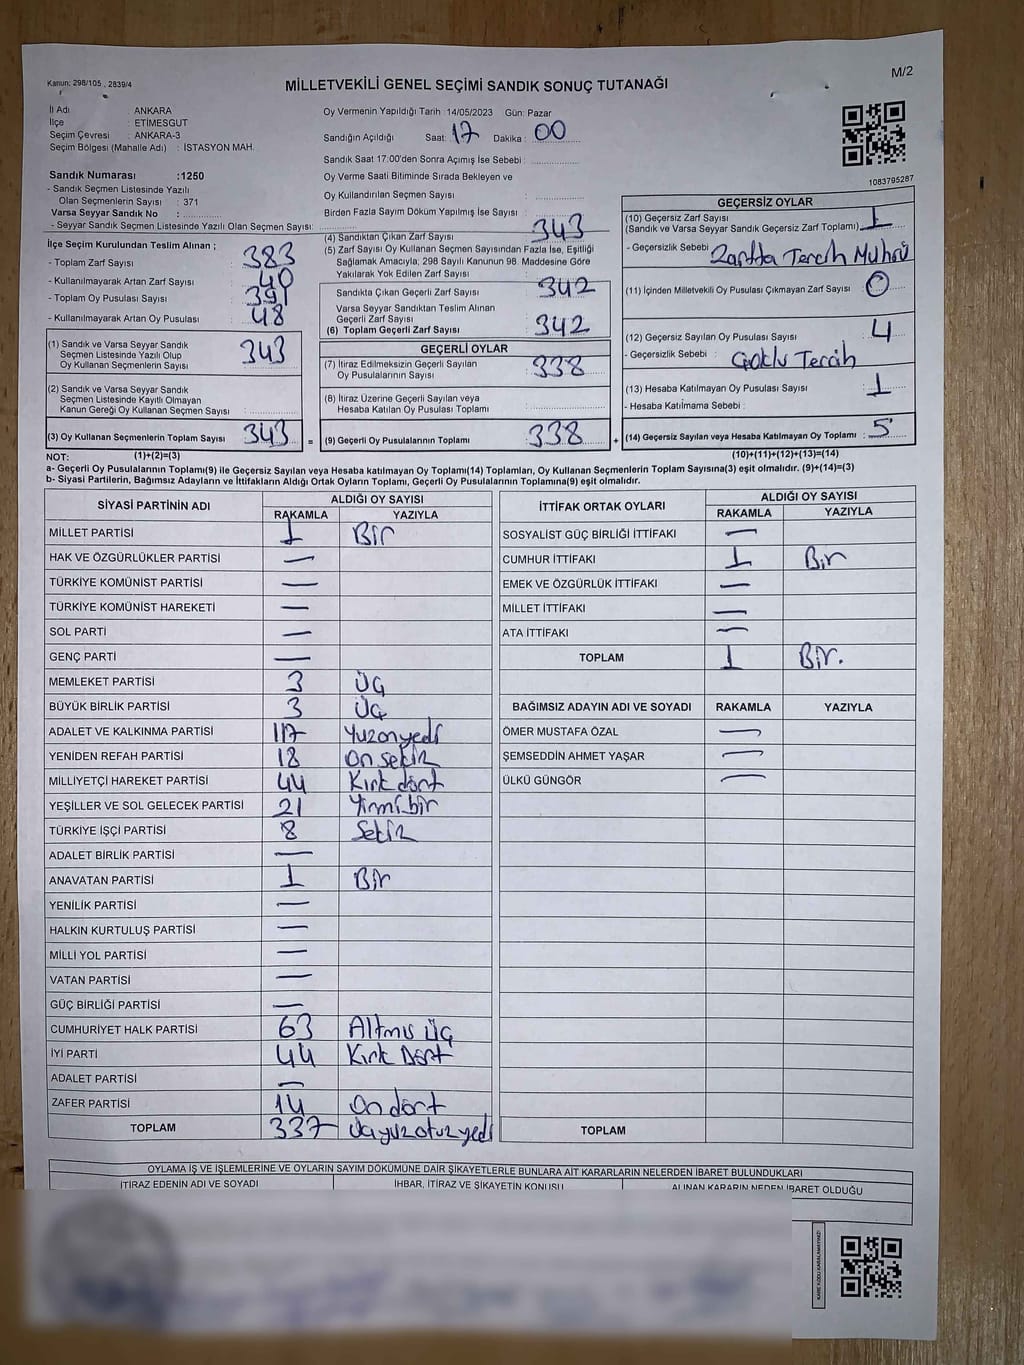 Kanun: 298/105 , 2839/4
MİLLETVEKİLİ GENEL SEÇİMİ SANDIK SONUÇ TUTANAĞI
M/2
İl Adı : ANKARA
İlçe : ETİMESGUT
Seçim Çevresi : ANKARA-3
Seçim Bölgesi (Mahalle Adı) : İSTASYON MAH.
Oy Vermenin Yapıldığı Tarih :14/05/2023 Gün: Pazar
Sandığın Açıldığı Saat: 17 Dakika : 00
Sandık Saat 17:00'den Sonra Açımış İse Sebebi :
Oy Verme Saati Bitiminde Sırada Bekleyen ve
Oy Kullandırılan Seçmen Sayısı :
Birden Fazla Sayım Döküm Yapılmış İse Sayısı :
1083795287
Sandık Numarası :1250
- Sandık Seçmen Listesinde Yazılı
Olan Seçmenlerin Sayısı : 371
Varsa Seyyar Sandık No :
- Seyyar Sandık Seçmen Listesinde Yazılı Olan Seçmen Sayısı:
İlçe Seçim Kurulundan Teslim Alınan ;
- Toplam Zarf Sayısı : 383
- Kullanılmayarak Artan Zarf Sayısı : 40
- Toplam Oy Pusulası Sayısı : 391
- Kullanılmayarak Artan Oy Pusulası : 48
(1) Sandık ve Varsa Seyyar Sandık
Seçmen Listesinde Yazılı Olup
Oy Kullanan Seçmenlerin Sayısı : 343
(2) Sandık ve Varsa Seyyar Sandık
Seçmen Listesinde Kayıtlı Olmayan
Kanun Gereği Oy Kullanan Seçmen Sayısı :
(3) Oy Kullanan Seçmenlerin Toplam Sayısı : 343 =
(4) Sandıktan Çıkan Zarf Sayısı : 343
(5) Zarf Sayısı Oy Kullanan Seçmen Sayısından Fazla İse, Eşitliği
Sağlamak Amacıyla, 298 Sayılı Kanunun 98. Maddesine Göre
Yakılarak Yok Edilen Zarf Sayısı :
Sandıkta Çıkan Geçerli Zarf Sayısı : 342
Varsa Seyyar Sandıktan Teslim Alınan
Geçerli Zarf Sayısı :
(6) Toplam Geçerli Zarf Sayısı : 342
GEÇERLİ OYLAR
(7) İtiraz Edilmeksizin Geçerli Sayılan
Oy Pusulalarının Sayısı : 338
(8) İtiraz Üzerine Geçerli Sayılan veya
Hesaba Katılan Oy Pusulası Toplamı :
(9) Geçerli Oy Pusulalarının Toplamı : 338 +
GEÇERSİZ OYLAR
(10) Geçersiz Zarf Sayısı
(Sandık ve Varsa Seyyar Sandık Geçersiz Zarf Toplamı) 1
- Geçersizlik Sebebi : Zarfta Tercih Mührü
(11) İçinden Milletvekili Oy Pusulası Çıkmayan Zarf Sayısı : 0
(12) Geçersiz Sayılan Oy Pusulası Sayısı : 4
- Geçersizlik Sebebi : Çoklu Tercih
(13) Hesaba Katılmayan Oy Pusulası Sayısı : 1
- Hesaba Katılmama Sebebi :
(14) Geçersiz Sayılan veya Hesaba Katılmayan Oy Toplamı : 5
NOT: (1)+(2)=(3) (10)+(11)+(12)+(13)=(14)
a- Geçerli Oy Pusulalarının Toplamı(9) ile Geçersiz Sayılan veya Hesaba katılmayan Oy Toplamı(14) Toplamları, Oy Kullanan Seçmenlerin Toplam Sayısına(3) eşit olmalıdır. (9)+(14)=(3)
b- Siyasi Partilerin, Bağımsız Adayların ve İttifakların Aldığı Ortak Oyların Toplamı, Geçerli Oy Pusulalarının Toplamına(9) eşit olmalıdır.
SİYASİ PARTİNİN ADI ALDIĞI OY SAYISI
RAKAMLA YAZIYLA
MİLLET PARTİSİ 1 Bir
HAK VE ÖZGÜRLÜKLER PARTİSİ —
TÜRKİYE KOMÜNİST PARTİSİ —
TÜRKİYE KOMÜNİST HAREKETİ —
SOL PARTİ —
GENÇ PARTİ —
MEMLEKET PARTİSİ 3 Üç
BÜYÜK BİRLİK PARTİSİ 3 Üç
ADALET VE KALKINMA PARTİSİ 117 Yüzonyedi
YENİDEN REFAH PARTİSİ 18 On sekiz
MİLLİYETÇİ HAREKET PARTİSİ 44 Kırk dört
YEŞİLLER VE SOL GELECEK PARTİSİ 21 Yirmi bir
TÜRKİYE İŞÇİ PARTİSİ 8 Sekiz
ADALET BİRLİK PARTİSİ —
ANAVATAN PARTİSİ 1 Bir
YENİLİK PARTİSİ —
HALKIN KURTULUŞ PARTİSİ —
MİLLİ YOL PARTİSİ —
VATAN PARTİSİ —
GÜÇ BİRLİĞİ PARTİSİ —
CUMHURİYET HALK PARTİSİ 63 Altmış üç
İYİ PARTİ 44 Kırk Dört
ADALET PARTİSİ —
ZAFER PARTİSİ 14 On dört
TOPLAM 337 Üçyüzotuzyedi
İTTİFAK ORTAK OYLARI ALDIĞI OY SAYISI
RAKAMLA YAZIYLA
SOSYALİST GÜÇ BİRLİĞİ İTTİFAKI —
CUMHUR İTTİFAKI 1 Bir
EMEK VE ÖZGÜRLÜK İTTİFAKI —
MİLLET İTTİFAKI —
ATA İTTİFAKI —
TOPLAM 1 Bir.
BAĞIMSIZ ADAYIN ADI VE SOYADI RAKAMLA YAZIYLA
ÖMER MUSTAFA ÖZAL —
ŞEMSEDDİN AHMET YAŞAR —
ÜLKÜ GÜNGÖR —
TOPLAM
OYLAMA İŞ VE İŞLEMLERİNE VE OYLARIN SAYIM DÖKÜMÜNE DAİR ŞİKAYETLERLE BUNLARA AİT KARARLARIN NELERDEN İBARET BULUNDUKLARI
İTİRAZ EDENİN ADI VE SOYADI İHBAR, İTİRAZ VE ŞİKAYETİN KONUSU ALINAN KARARIN NEDEN İBARET OLDUĞU